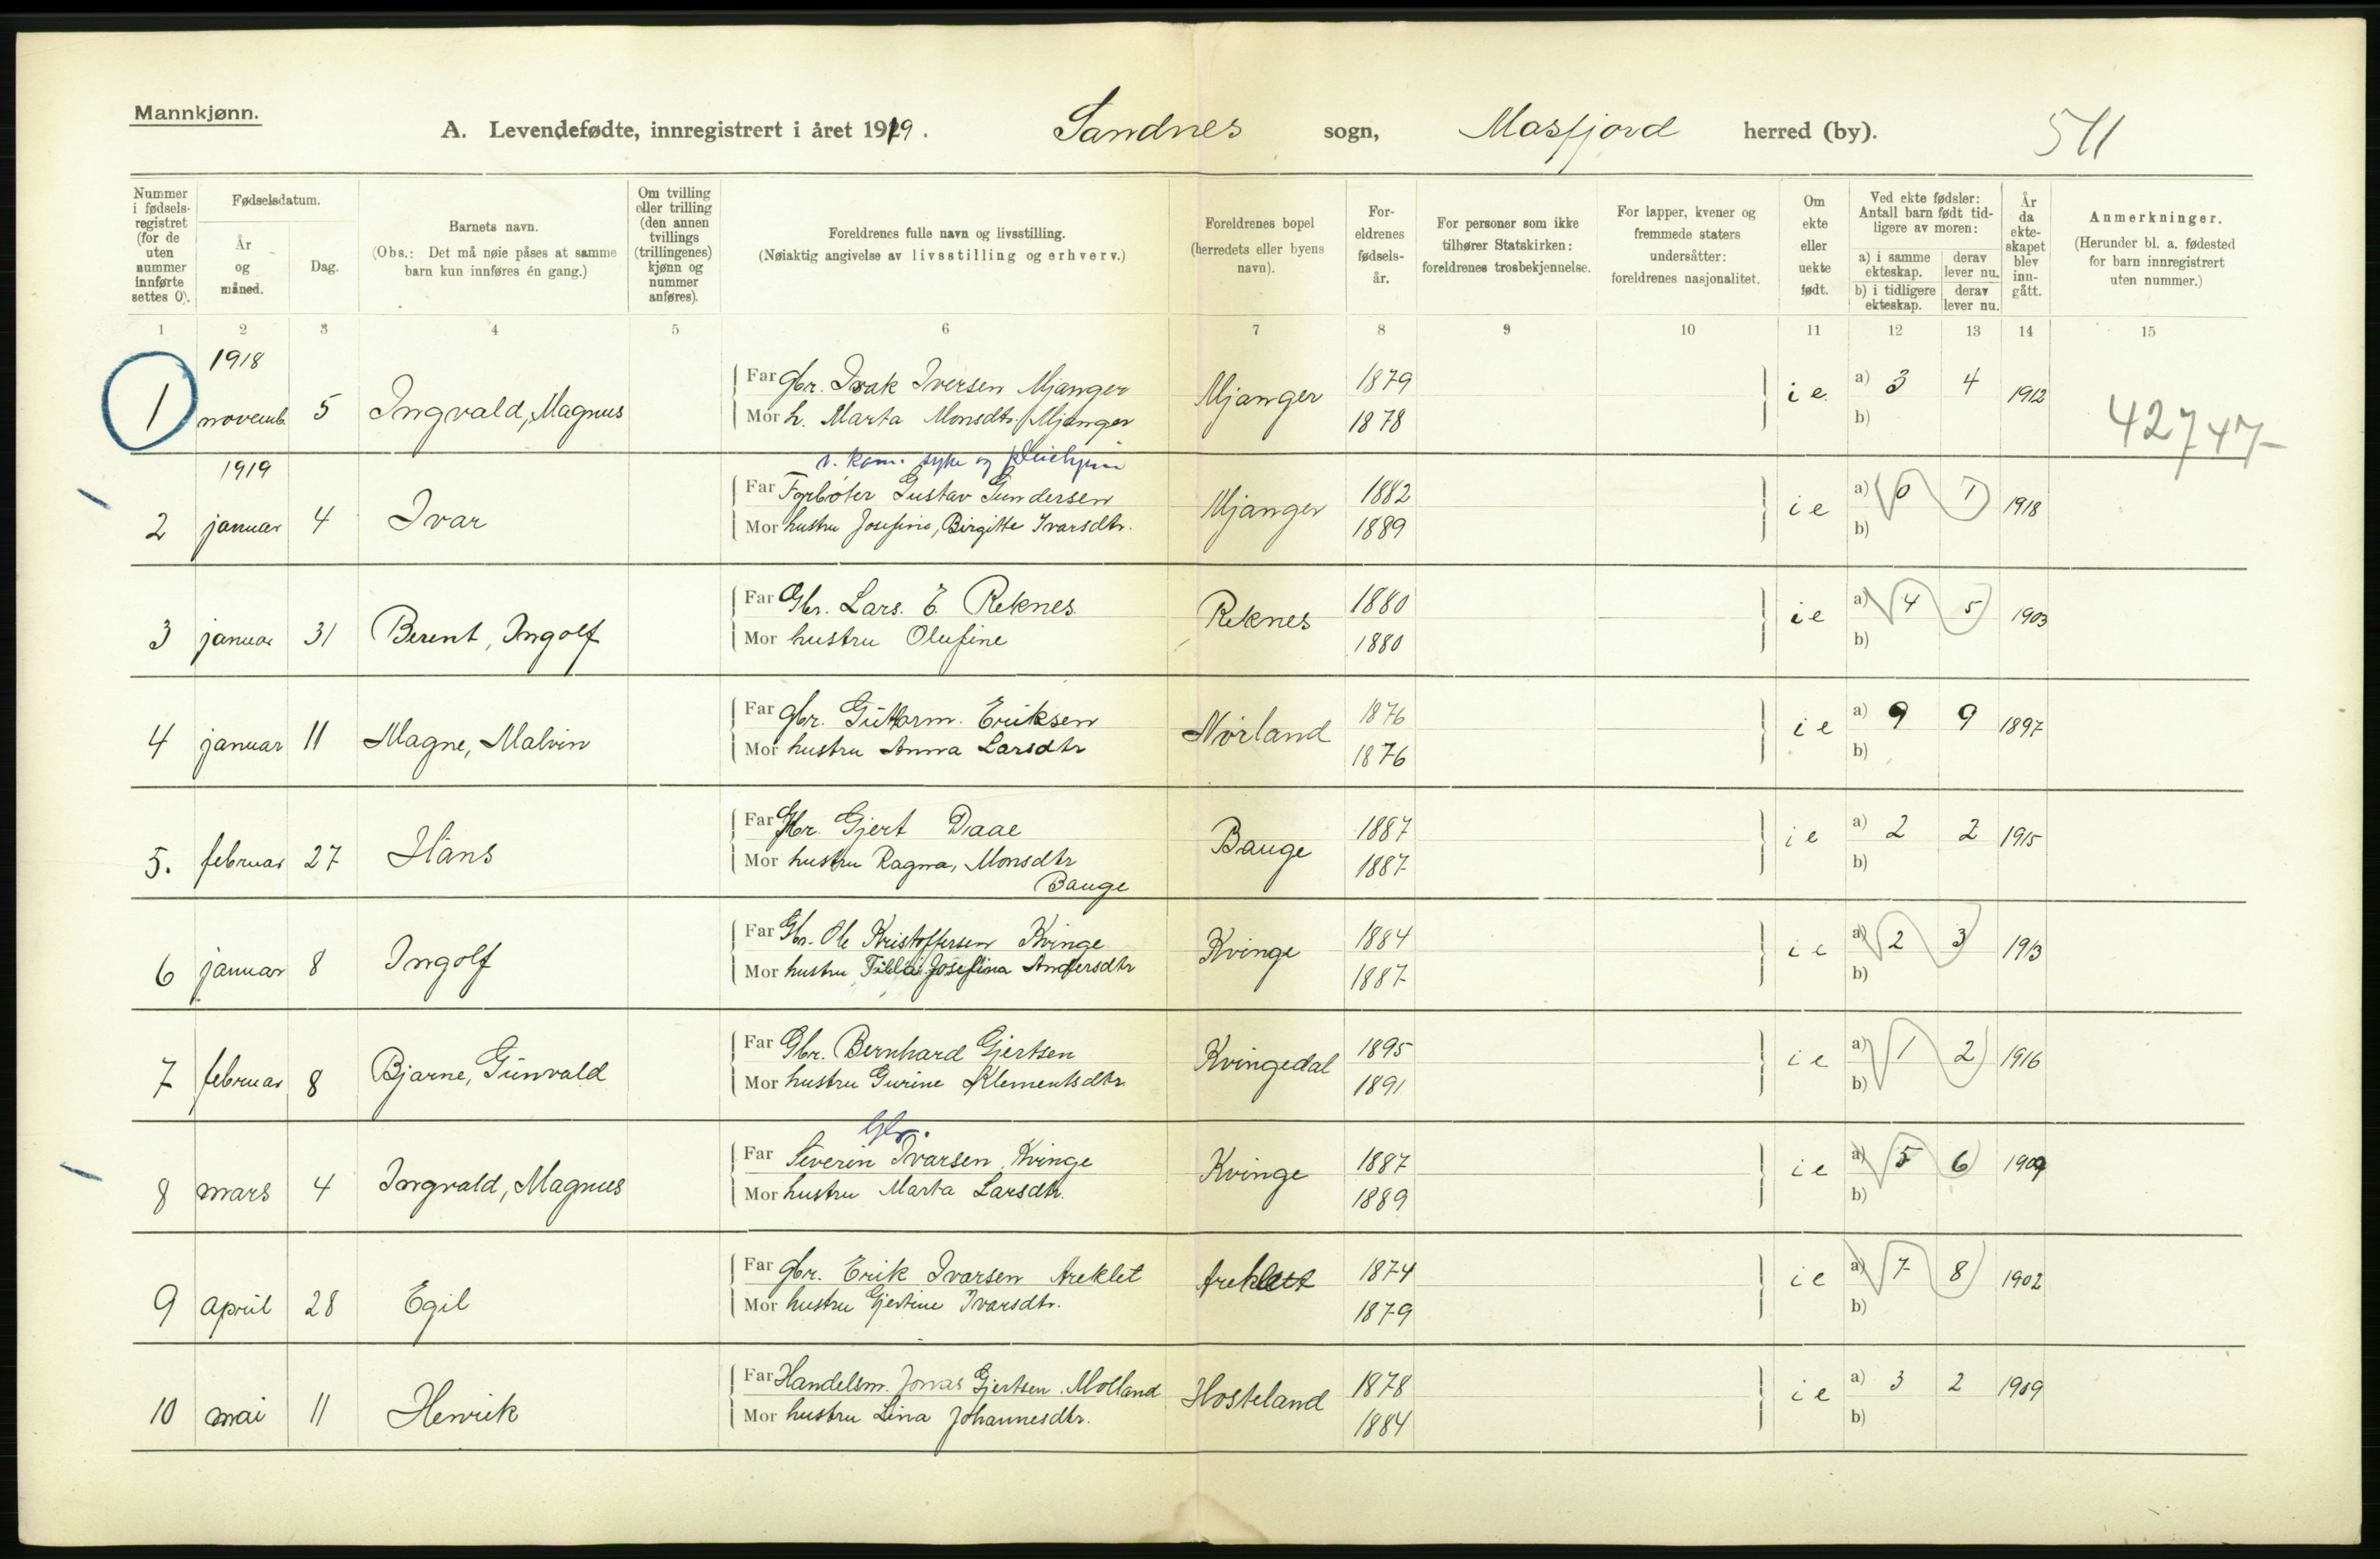 Mannkjønn.
A. Levendefødte, innregistrert i året 1919. Sandnes sogn, Masfjord herred (by). 511
Nummer i fødsels-registret (for de uten nummer innførte settes 0).
Fødselsdatum.
År og måned.
Dag.
Barnets navn.
(Obs.: Det må nøie påses at samme barn kun innføres én gang.)
Om tvilling eller trilling (den annen tvillings (trillingenes) kjønn og nummer anføres).
Foreldrenes fulle navn og livsstilling.
(Nøiaktig angivelse av livsstilling og erhverv.)
Foreldrenes bopel (herredets eller byens navn).
For-eldrenes fødsels-år.
For personer som ikke tilhører Statskirken: foreldrenes trosbekjennelse.
For lapper, kvener og fremmede staters undersåtter: foreldrenes nasjonalitet.
Om ekte eller uekte født.
Ved ekte fødsler: Antall barn født tid-ligere av moren:
a) i samme ekteskap. derav lever nu.
b) i tidligere ekteskap. derav lever nu.
År da ekte-skapet blev inn-gått.
Anmerkninger.
(Herunder bl. a. fødested for barn innregistrert uten nummer.)
1 2 3 4 5 6 7 8 9 10 11 12 13 14 15
1918
1 novemb. 5 Ingvald, Magnus Far Gbr. Isak Iversen Mjanger Mjanger 1879 i e a) 3 4 1912
Mor h. Marta Monsdtr. Mjanger 1878 b)
42747-
1919
v. kom. syke og pleiehjem
2 januar 4 Ivar Far Fyrbøter Gustav Gundersen Mjanger 1882 i e a) 0 1 1918
Mor hustru Josefine, Birgitte Ivarsdtr. 1889 b)
3 januar 31 Berent, Ingolf Far Gbr. Lars. E. Reknes Reknes 1880 i e a) 4 5 1903
Mor hustru Olufine 1880 b)
4 januar 11 Magne, Malvin Far Gbr. Guttorm. Eriksen Nørland 1876 i e a) 9 9 1897
Mor hustru Anna Larsdtr 1876 b)
5. februar 27 Hans Far Gbr. Gjert Daae Bauge 1887 i e a) 2 2 1915
Mor hustru Ragna, Monsdtr Bauge 1887 b)
6 januar 8 Ingolf Far Gbr. Ole Kristoffersen Kvinge Kvinge 1884 i e a) 2 3 1913
Mor hustru Tilla Josefina Andersdtr 1887 b)
7 februar 8 Bjarne, Gunvald Far Gbr. Bernhard Gjertsen Kvingedal 1895 i e a) 1 2 1916
Mor hustru Gurine Klementsdtr. 1891 b)
Gbr.
8 mars 4 Ingvald, Magnus Far Severin Ivarsen Kvinge Kvinge 1887 i e a) 5 6 1909
Mor hustru Marta Larsdtr. 1889 b)
9 april 28 Egil Far Gbr. Erik Ivarsen Areklet Areklett 1874 i e a) 7 8 1902
Mor hustru Gjertine Ivarsdtr. 1879 b)
10 mai 11 Henrik Far Handelsm. Jonas Gjertsen Molland Hosteland 1878 i e a) 3 2 1909
Mor hustru Lina Johannesdtr. 1884 b)